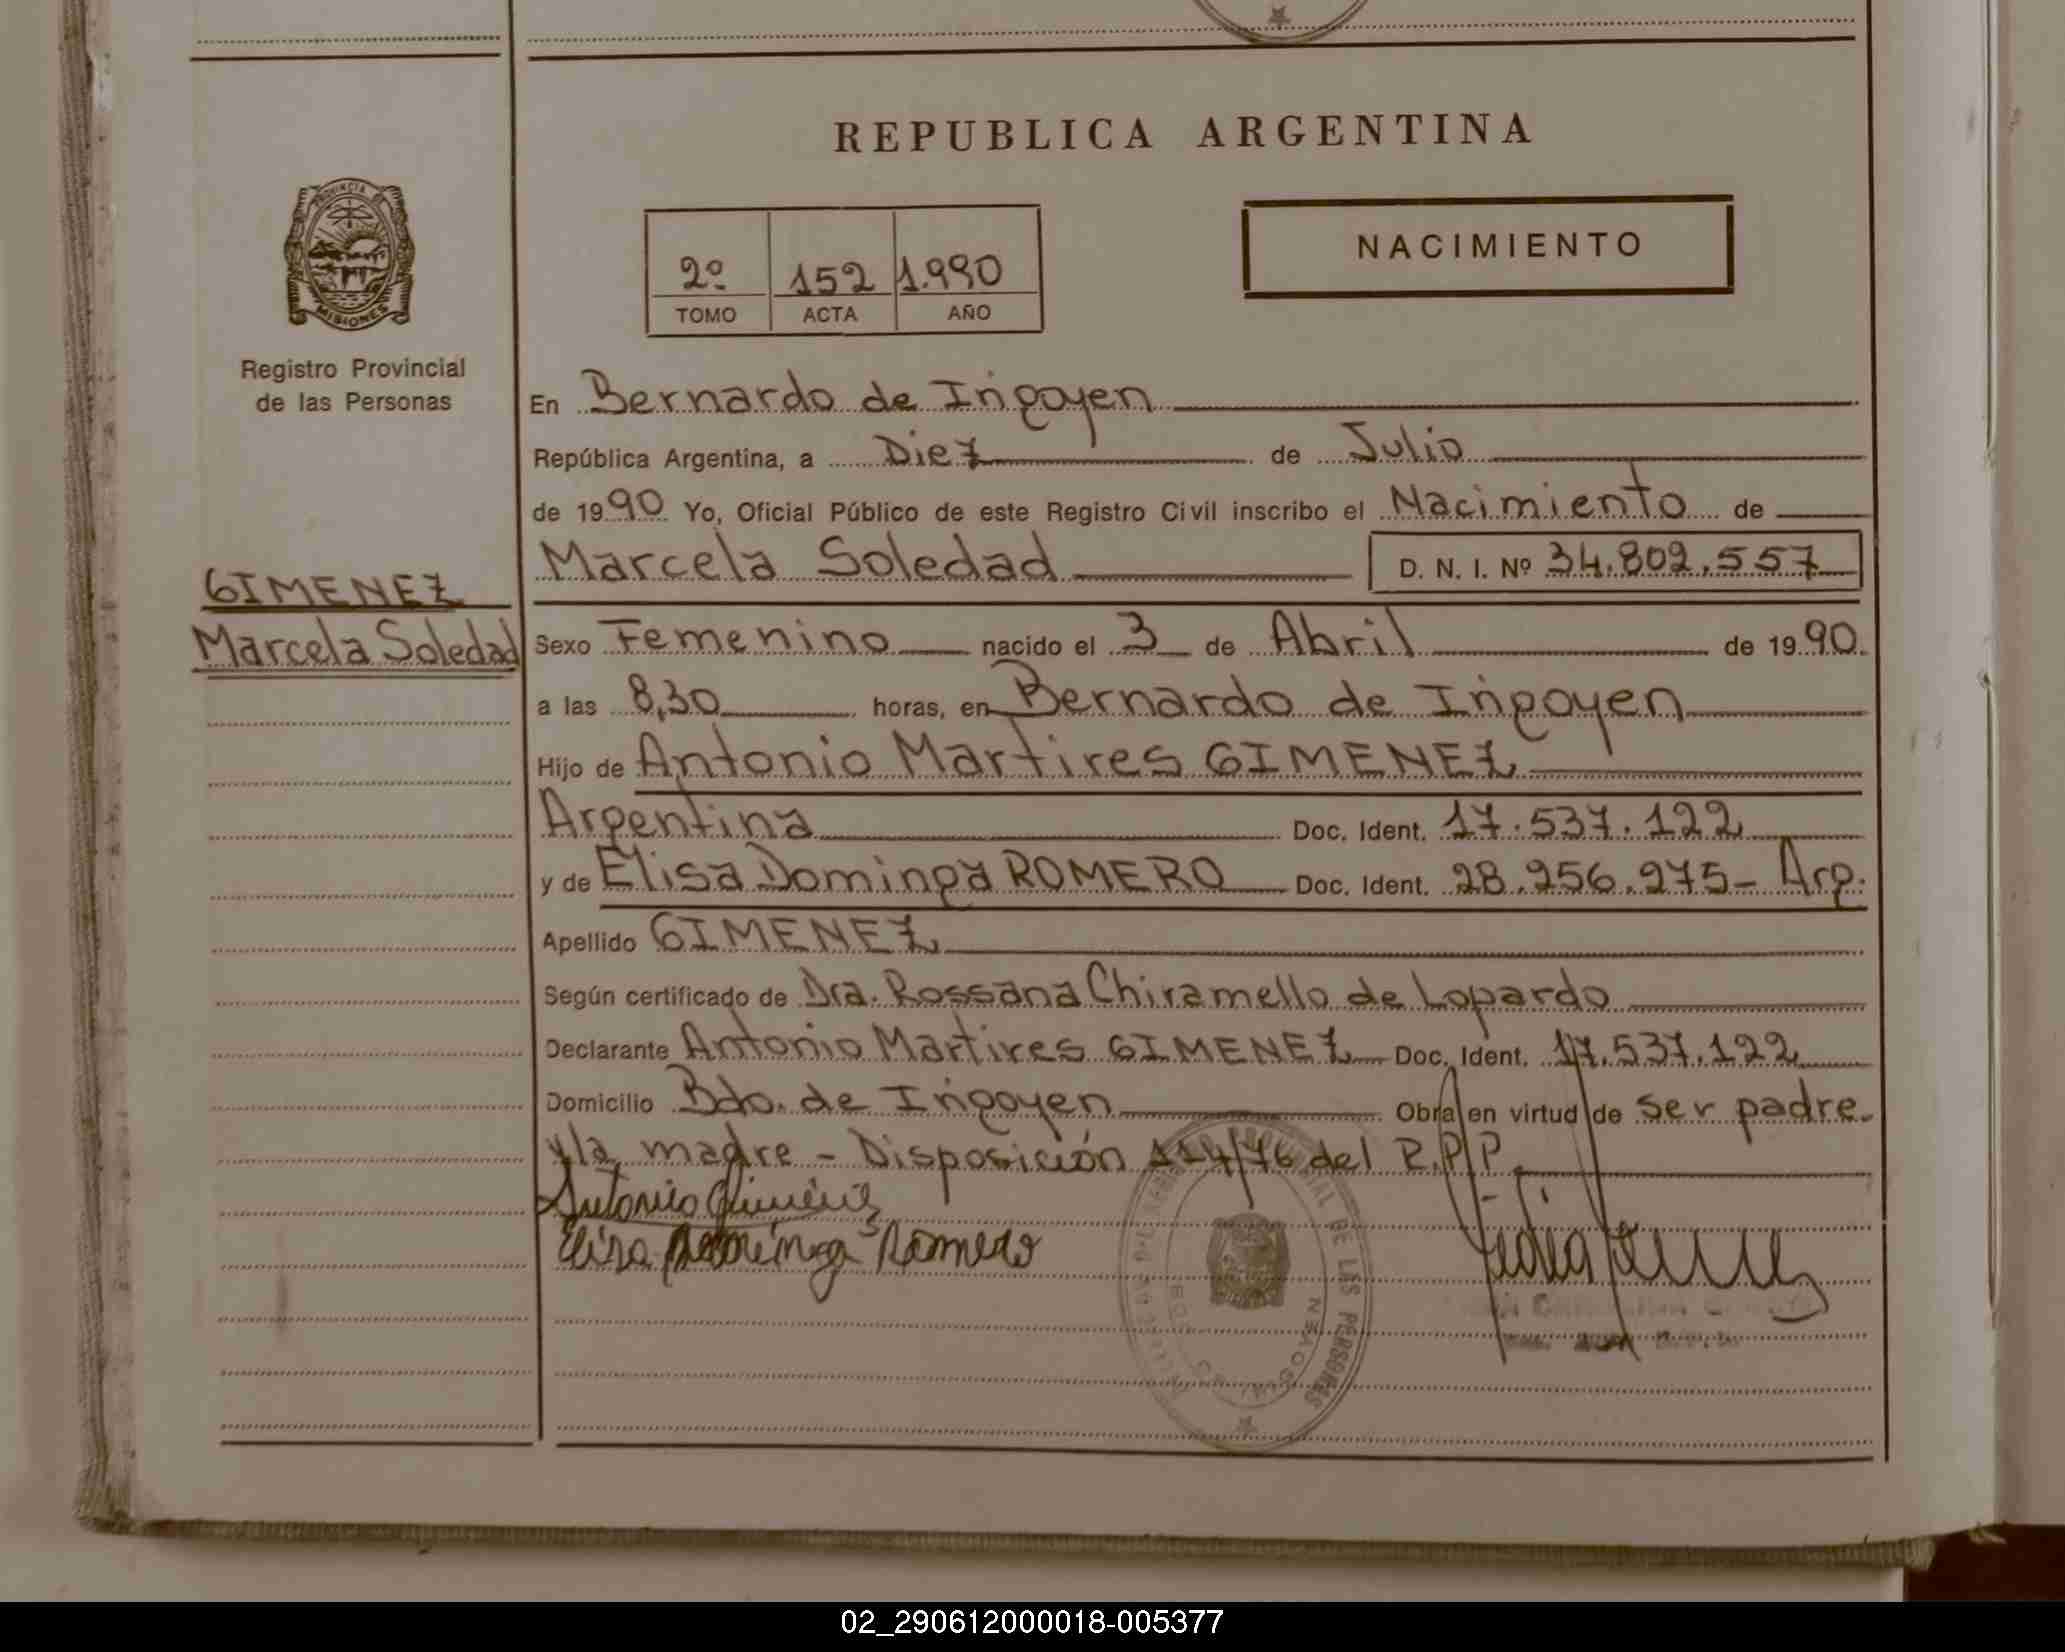 REPUBLICA ARGENTINA
PROVINCIA
MISIONES
Registro Provincial
de las Personas
2º 152 1.990
TOMO ACTA AÑO
NACIMIENTO
En Bernardo de Irigoyen
República Argentina, a Diez de Julio
de 1990 Yo, Oficial Público de este Registro Civil inscribo el Nacimiento de
Marcela Soledad D. N. I. Nº 34.802.557
GIMENEZ
Marcela Soledad
Sexo Femenino nacido el 3 de Abril de 1990.
a las 8,30 horas, en Bernardo de Irigoyen
Hijo de Antonio Martires GIMENEZ
Argentina Doc. Ident. 17.537.122
y de Elisa Dominga ROMERO Doc. Ident. 28.256.275- Arg.
Apellido GIMENEZ
Según certificado de Dra. Rossana Chiramello de Lopardo
Declarante Antonio Martires GIMENEZ Doc. Ident. 17.537.122
Domicilio Bdo. de Irigoyen Obra en virtud de ser padre.
y la madre - Disposición 114/76 del R.P.P.
Antonio Gimenez
Elisa Dominga Romero
DE LAS PERSONAS
02_290612000018-005377